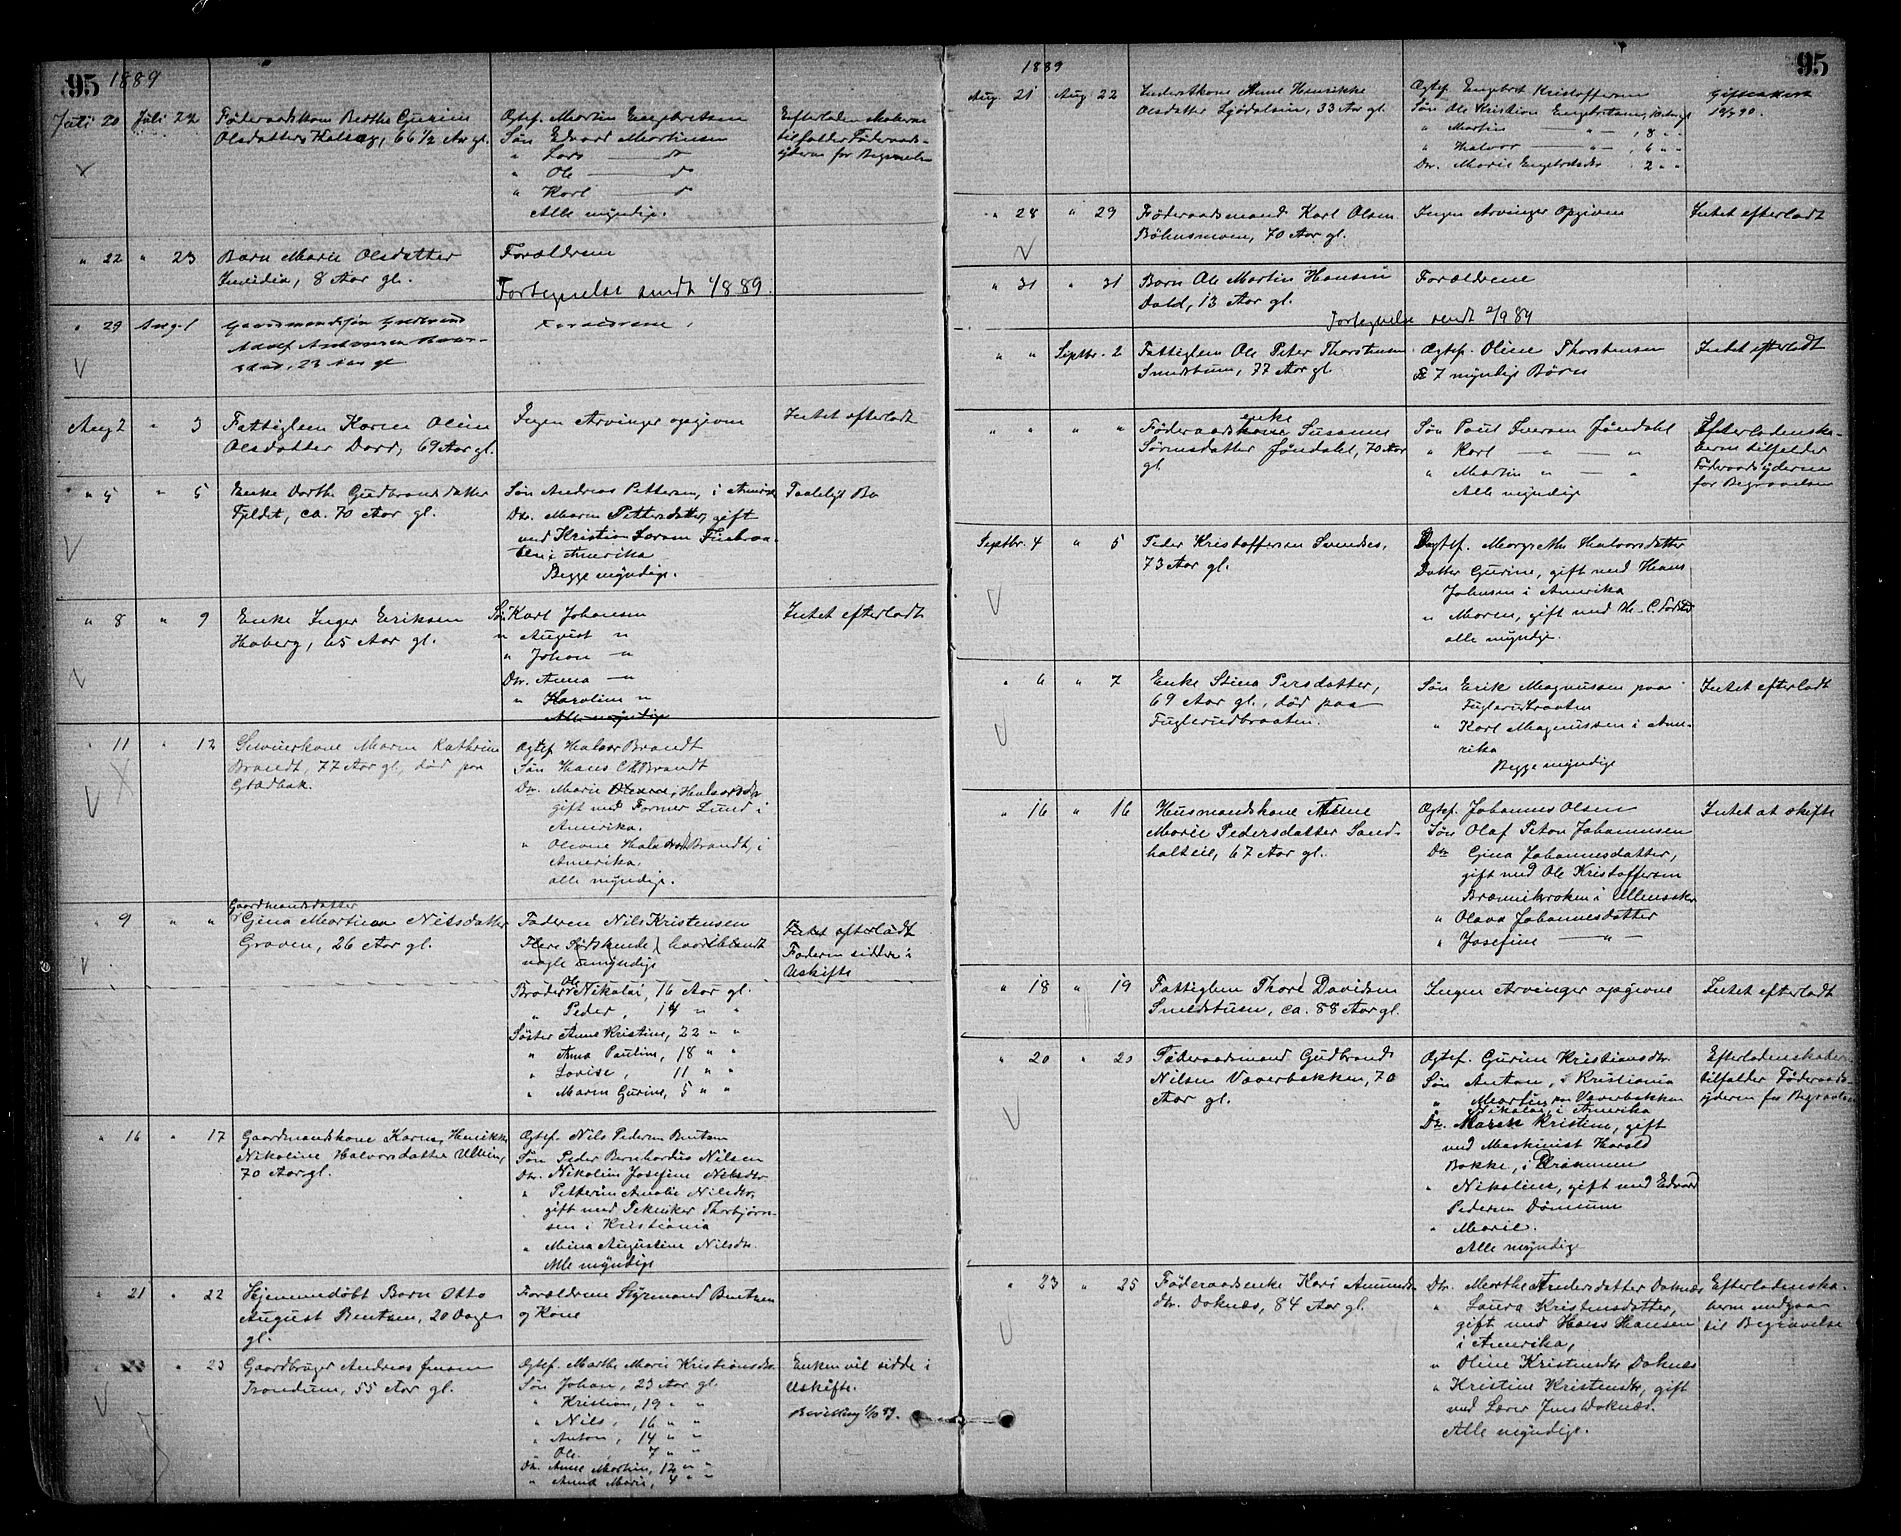 95 1889
Juli 20 Juli 22 Føderaadskone Berthe Gurine
Olsdatter Kalseg, 66 1/2 Aar gl.
Ægtef. Martin Engebretsen
Søn Edvard Martinsen
" Lars — do
" Ole — do
" Karl — do
Alle myndige.
tilfalder Føderaads-
yderen for Begravelsen
" 22 " 23 Barn Marie Olsdatter
8 Aar gl.
Forældrene
Fortegnelse sendt 1/8 89.
" 29 Aug. 1 Gaardmandssøn Gudbrand
Adolf
23 Aar gl
Forældrene
Aug 2 " 3 Fattiglem Karen Oline
Olsdatter Dorr, 69 Aar gl.
Ingen Arvinger opgiven
Intet efterladt
" 5 " 5 Enke Dorthe Gudbrandsdatter
Fjeldet, ca. 70 Aar gl.
Søn Andreas Pettersen, i Amerika
Dtr. Maren Pettersdatter, gift
med Kristian Larsen
i Amerika
Begge myndige.
" 8 " 9 Enke Inger Eriksen
Haberg, 65 Aar gl.
Søn Karl Johansen
" August "
" Johan — "
Dtr. Anna — "
" Karoline "
Alle myndige
Intet efterladt
" 11 " 12 Maren Kathrine
Brandt, 77 Aar gl, død paa
Gladbak.
Ægtef. Halvor Brandt
Søn Hans Chr Brandt
Dtr. Marie Halvorsdtr
gift med Farmer Lund i
Amerika.
" Oleane Brandt, i
Amerika.
alle myndige.
" 9 " " Gaardmandsdatter
Gina Martinea Nilsdatter
Graven, 26 Aar gl.
Faderen Nils Kristensen
Flere Sødskende hvoriblandt
nogle umyndige
Broder Ole Nikolai, 16 Aar gl.
" Peder, 14 " "
Søster Anne Kristine, 22 " "
" Anna Pauline, 18 " "
" Lovise, 11 " "
" Maren Gurine, 5 " "
Intet efterladt
Faderen sidder i
Uskifte
" 16 " 17 Gaardmandskone Karen Henrikke
Nikoline Halvorsdatter Ullern,
70 Aar gl.
Ægtef. Nils Pedersen Bentsen
Søn Peder Bernhardus Nilsen
Dtr. Nikoline Josefine Nilsdtr.
" Petterine Amalie Nilsdtr.
gift med Tekniker Thorbjørn-
sen i Kristiania
" Mina Augustine Nilsdtr.
Alle myndige
" 21 " 22 Hjemmedøbt Barn Otto
August Bentsen, 20 Dage
gl.
Forældrene Styrmand Bentsen
og Kone
" 23 Gaardbruger Andreas Jensen
Trondum, 55 Aar gl.
Ægtef. Marthe Marie Kristiansdtr.
Søn Johan, 23 Aar gl.
" Kristian, 19 " "
" Nils, 16 " "
" Anton, 14 " "
" Ole, 7 " "
Dtr. Anne Martine, 12 " "
" Anna Marie, 4 " "
Enken vil sidde i
Uskifte.
Bevilling
1889 95
Aug. 21 Aug 22 Anne Henrikke
Olsdatter Ljødalseie, 33 Aar gl.
Ægtef. Engebret Kristoffersen
Søn Ole Kristian Engebretsen, 10 Aar gl
" Martin — " — , 8 " "
" Halvor — " — , 6 " "
Dtr. Marie Engebretsdtr 2 " "
" 28 " 29 Føderaadsmand Karl Olsen
Bøhnsmoen, 70 Aar gl.
Ingen Arvinger opgiven
Intet efterladt
" 31 " 31 Barn Ole Martin Hansen
Dald, 13 Aar gl.
Forældrene
Fortegnelse sendt 2/9 89
" " Septbr. 2 Fattiglem Ole Peter Thorstensen
Smedstuen, 77 Aar gl.
Ægtef. Oline Thorstensen
7 myndige Børn
Intet efterladt
" " " " Føderaadsenke Susanne
Sørensdatter Jøndahl, 70 Aar
gl
Søn Paul Iversen Jøndahl
" Karl — " — "
" Martin " — "
Alle myndige
Efterladenska-
berne tilfalder
Føderaadsyderne
for Begravelsen
Septbr. 4 " 5 Peder Kristoffersen Sundes,
73 Aar gl.
Ægtef. Margrethe Halvorsdatter
Datter Gurine, gift med Hans
Johnsen i Amerika
" Maren, gift med H. C.
alle myndige.
" 6 " 7 Enke Stina Persdatter,
69 Aar gl., død paa
Fuglerudbraaten.
Søn Erik Magnussen paa
Fuglerudbraaten
" Karl Magnussen i Ame-
rika
Begge myndige
Intet efterladt
" 16 " 16 Husmandskone Anne
Marie Pedersdatter Sand-
holteie, 67 Aar gl.
Ægtef. Johannes Olsen
Søn Olaf Peton Johannesen
Dtr Gina Johannesdatter,
gift med Ole Kristoffersen
i Ullensaker
" Olava Johannesdatter
" Josefine — " —
Intet at skifte
" 18 " 19 Fattiglem Thore Davidsen
Smedstuen, ca. 88 Aar gl.
Ingen Arvinger opgivne
Intet efterladt
" 20 " 20 Føderaadsmand Gudbrand
Nilsen Vaaerbakken, 70
Aar gl.
Ægtef. Gurine Kristiansdtr.
Søn Anton, i Kristiania
" Martin, paa Vaaerbakken
Nikolai, i Amerika
Dtr. Maren Kristine, gift
med Maskinist Harald
Bakke, i Drammen
" Nikoline, gift med Edvard
Pedersen Dønnum
" Marie.
Alle myndige
Efterladenskaberne
tilfalder Føderaads-
yderen for Begravelsen
" 23 " 25 Føderaadsenke Kari Amunds-
dtr. Doknæs, 84 Aar gl.
Dtr. Marthe Andersdatter Doknæs
" Laura Kristensdatter,
gift med Hans Hansen
i Amerika,
" Oline Kristensdtr Doknæs
" Kristine Kristensdtr, gift
med Lærer Jens Doknæs.
Alle myndige.
Efterladenska-
berne medgaar
til Begravelse